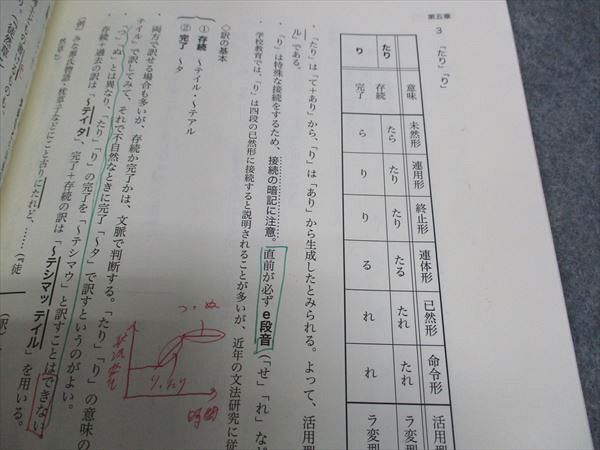 第五章
3 「たり」「り」
意味 未然形 連用形 終止形 連体形 已然形 命令形 活用型
たり 存続 たら たり たり たる たれ たれ ラ変型
り 完了 ら り り る れ れ ラ変型
・「たり」は「て+あり」から、「り」は「あり」から生成したとみられる。よって、活用型
ル」である。
・「り」は特殊な接続をするため、接続の暗記に注意。直前が必ずe段音(「せ」「れ」な
学校教育では、「り」は四段の已然形に接続すると説明されることが多いが、近年の文法研究に従
◇訳の基本
① 存続 ～テイル・～テアル
② 完了 ～タ
・両方で訳せる場合も多いが、存続か完了かは、文脈で判断する。「たり」「り」の意味の
テイル」で訳してみて、それで不自然なときに完了「～タ」で訳すというのがよい。
「つ」「ぬ」とは異なり、「たり」「り」の完了を「～テシマウ」と訳すことはできない
・存続+過去の訳は「～テイタ」、完了+存続の訳は「～テシマッテイル」を用いる。
(例) みな源氏物語・枕草子などにこと古りにたれど、……(徒
枕草
(訳)
つ・ぬ
り、たり
時間